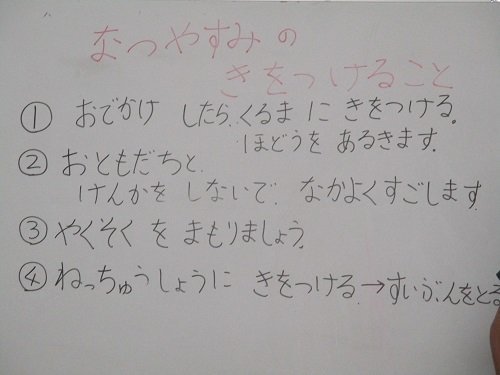 なつやすみの
きをつけること
① おでかけ したら、くるま に きをつける。
ほどうを あるきます。
② おともだちと、
けんかを しないで、 なかよくすごします
③ やくそく を まもりましょう。
④ ねっちゅうしょうに きをつける→すいぶんをとる